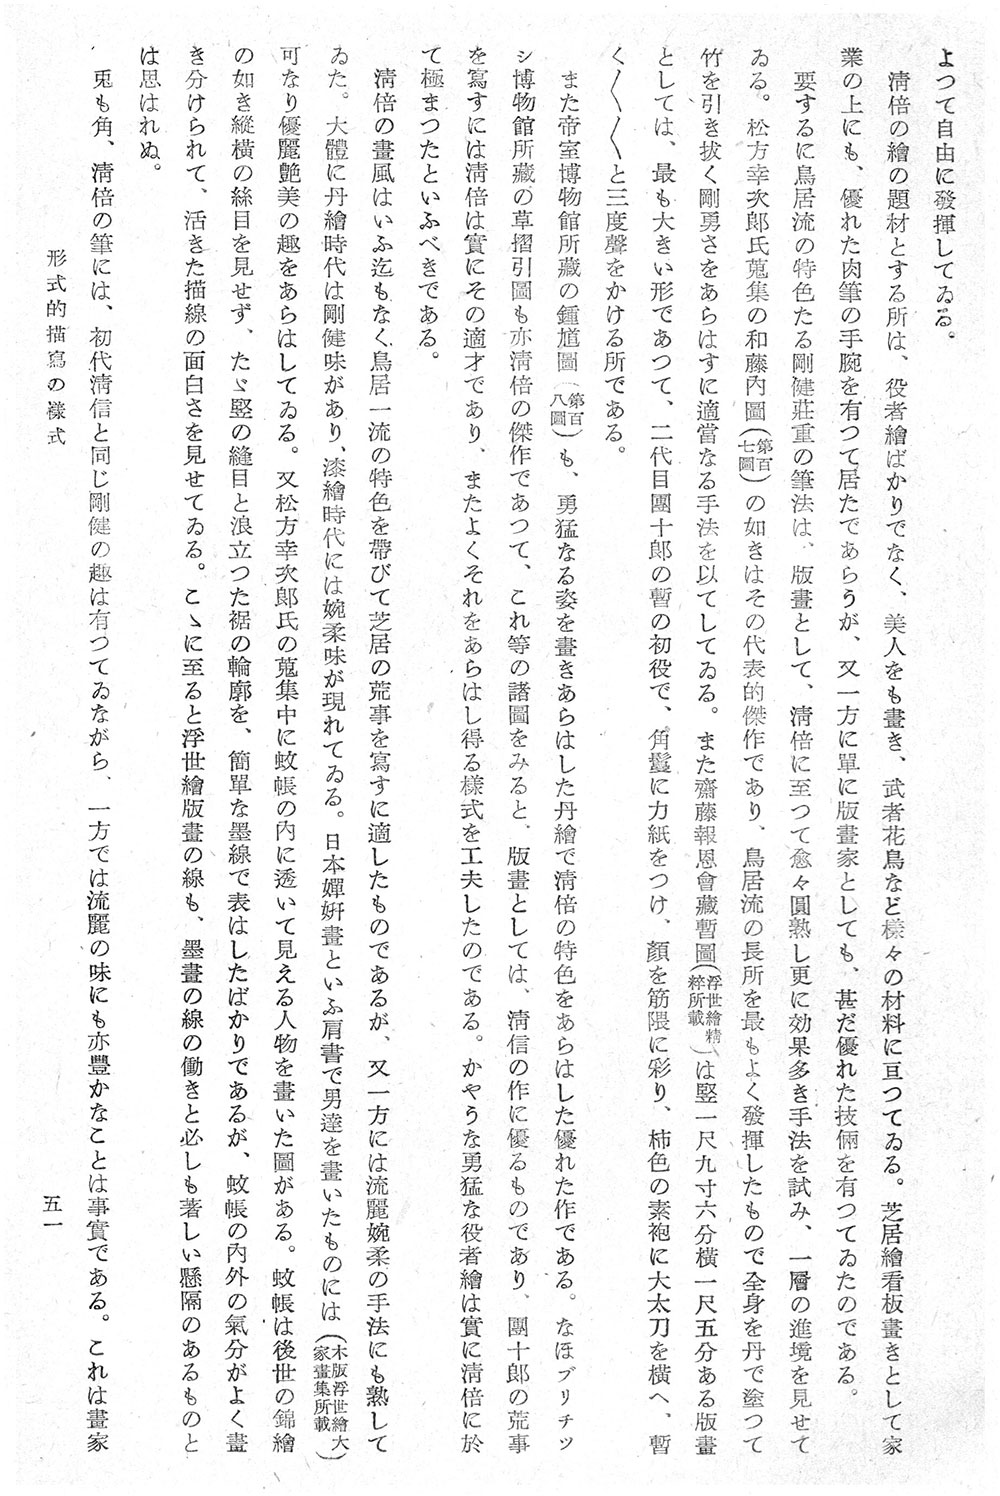 よつて自由に發揮してゐる。
　淸倍の繪の題材とする所は、役者繪ばかりでなく、美人をも畫き、武者花鳥など樣々の材料に亘つてゐる。芝居繪看板畫きとして家
業の上にも、優れた肉筆の手腕を有つて居たであらうが、又一方に單に版畫家としても、甚だ優れた技倆を有つてゐたのである。
　要するに鳥居流の特色たる剛健莊重の筆法は、版畫として、淸倍に至つて愈々圓熟し更に効果多き手法を試み、一層の進境を見せて
ゐる。松方幸次郞氏蒐集の和藤內圖（第百七圖）の如きはその代表的傑作であり、鳥居流の長所を最もよく發揮したもので全身を丹で塗つて
竹を引き拔く剛勇さをあらはすに適當なる手法を以てしてゐる。また齋藤報恩會藏暫圖（浮世繪精粹所載）は竪一尺九寸六分橫一尺五分ある版畫
としては、最も大きい形であつて、二代目團十郞の暫の初役で、角鬘に力紙をつけ、顏を筋隈に彩り、柿色の素袍に大太刀を橫へ、暫
く〱〱〱と三度聲をかける所である。
　また帝室博物館所藏の鍾馗圖（第百八圖）も、勇猛なる姿を畫きあらはした丹繪で淸倍の特色をあらはした優れた作である。なほブリチツ
シ博物館所藏の草摺引圖も亦淸倍の傑作であつて、これ等の諸圖をみると、版畫としては、淸信の作に優るものであり、團十郞の荒事
を寫すには淸倍は實にその適才であり、またよくそれをあらはし得る樣式を工夫したのである。かやうな勇猛な役者繪は實に淸倍に於
て極まつたといふべきである。
　淸倍の畫風はいふ迄もなく鳥居一流の特色を帶びて芝居の荒事を寫すに適したものであるが、又一方には流麗婉柔の手法にも熟して
ゐた。大體に丹繪時代は剛健味があり、漆繪時代には婉柔味が現れてゐる。日本嬋姸畫といふ肩書で男達を畫いたものには（木版浮世繪大家畫集所載）
可なり優麗艶美の趣をあらはしてゐる。又松方幸次郞氏の蒐集中に蚊帳の內に透いて見える人物を畫いた圖がある。蚊帳は後世の錦繪
の如き縱橫の絲目を見せず、たゞ竪の縫目と浪立つた裾の輪廓を、簡單な墨線で表はしたばかりであるが、蚊帳の內外の氣分がよく畫
き分けられて、活きた描線の面白さを見せてゐる。こゝに至ると浮世繪版畫の線も、墨畫の線の働きと必しも著しい懸隔のあるものと
は思はれぬ。
　兎も角、淸倍の筆には、初代淸信と同じ剛健の趣は有つてゐながら、一方では流麗の味にも亦豐かなことは事實である。これは畫家
形式的描寫の樣式
五一